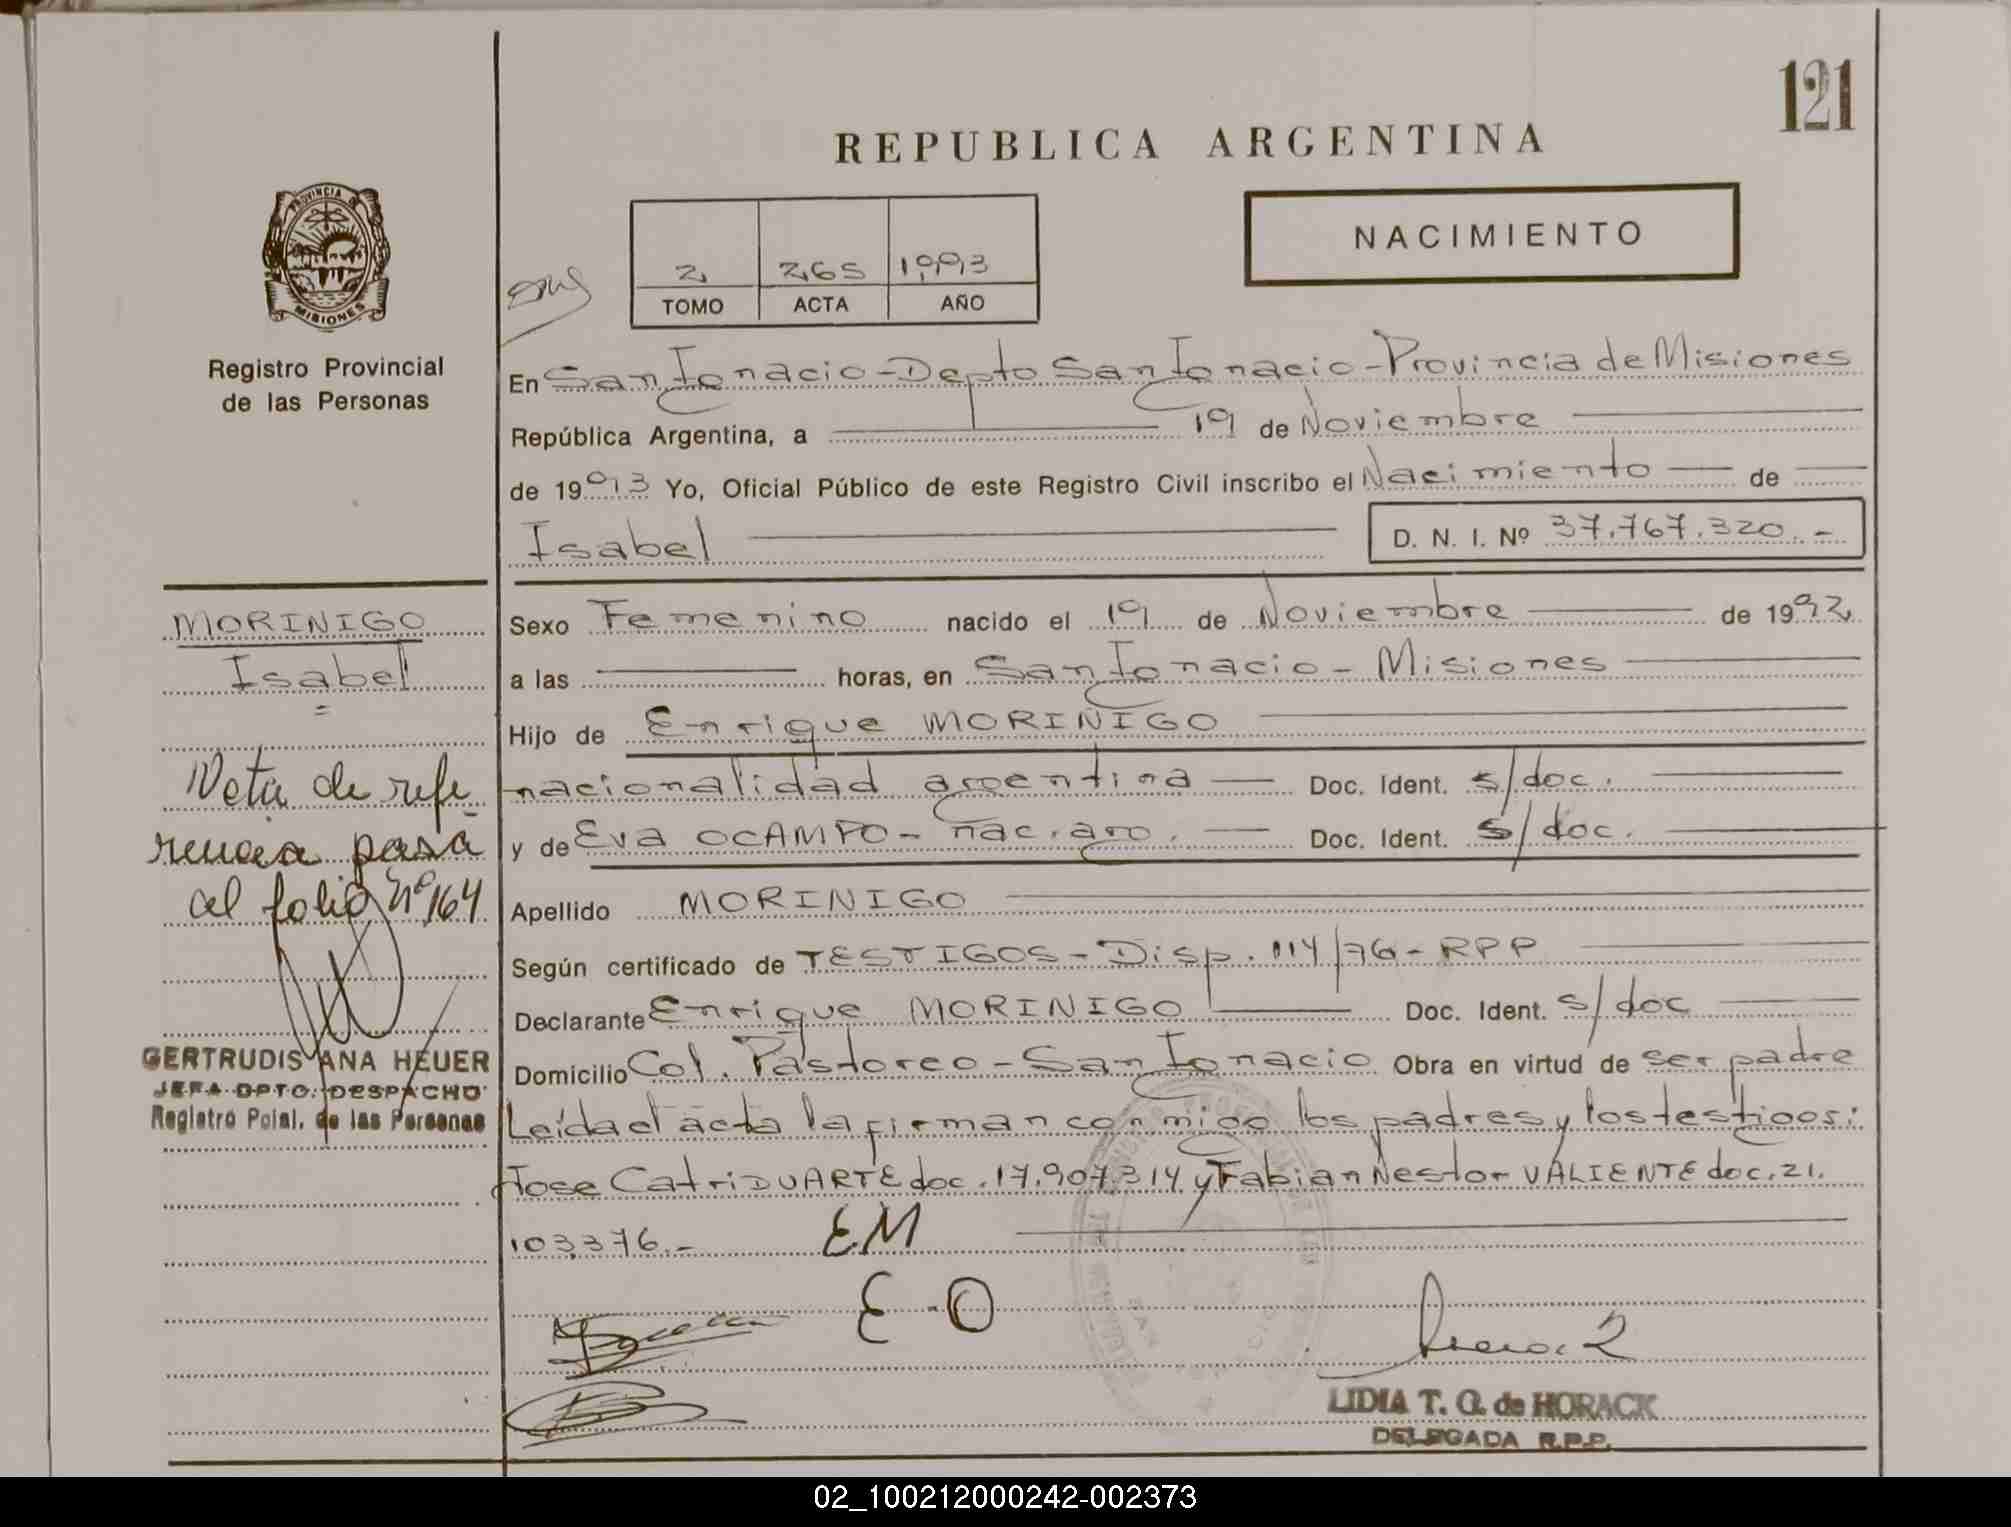 121
REPUBLICA ARGENTINA
PROVINCIA DE
MISIONES
Registro Provincial
de las Personas
2 265 1993
TOMO ACTA AÑO
NACIMIENTO
En San Ignacio - Depto San Ignacio - Provincia de Misiones
República Argentina, a 19 de Noviembre
de 1993 Yo, Oficial Público de este Registro Civil inscribo el Nacimiento de
Isabel
D. N. I. Nº 37.767.320.-
MORINIGO
Isabel
=
Nota de refe
rencia pasa
al folio nº 164
GERTRUDIS ANA HEUER
JEFA DPTO. DESPACHO
Registro Pcial. de las Personas
Sexo Femenino nacido el 19 de Noviembre de 1992
a las horas, en San Ignacio - Misiones
Hijo de Enrique MORIÑIGO
nacionalidad argentina Doc. Ident. s/doc.
y de Eva OCAMPO - nac. arg. Doc. Ident. s/doc.
Apellido MORINIGO
Según certificado de TESTIGOS - Disp. 114/76 - RPP
Declarante Enrique MORINIGO Doc. Ident. s/doc
Domicilio Col. Pastoreo - San Ignacio Obra en virtud de ser padre
Leída el acta la firman conmigo los padres y los testigos:
Jose Catri DUARTE doc. 17.907.314 y Fabian Nestor VALIENTE doc. 21.
103.376.- EM
E-O
LIDIA T. G. de HORACK
DELEGADA R.P.P.
02_100212000242-002373